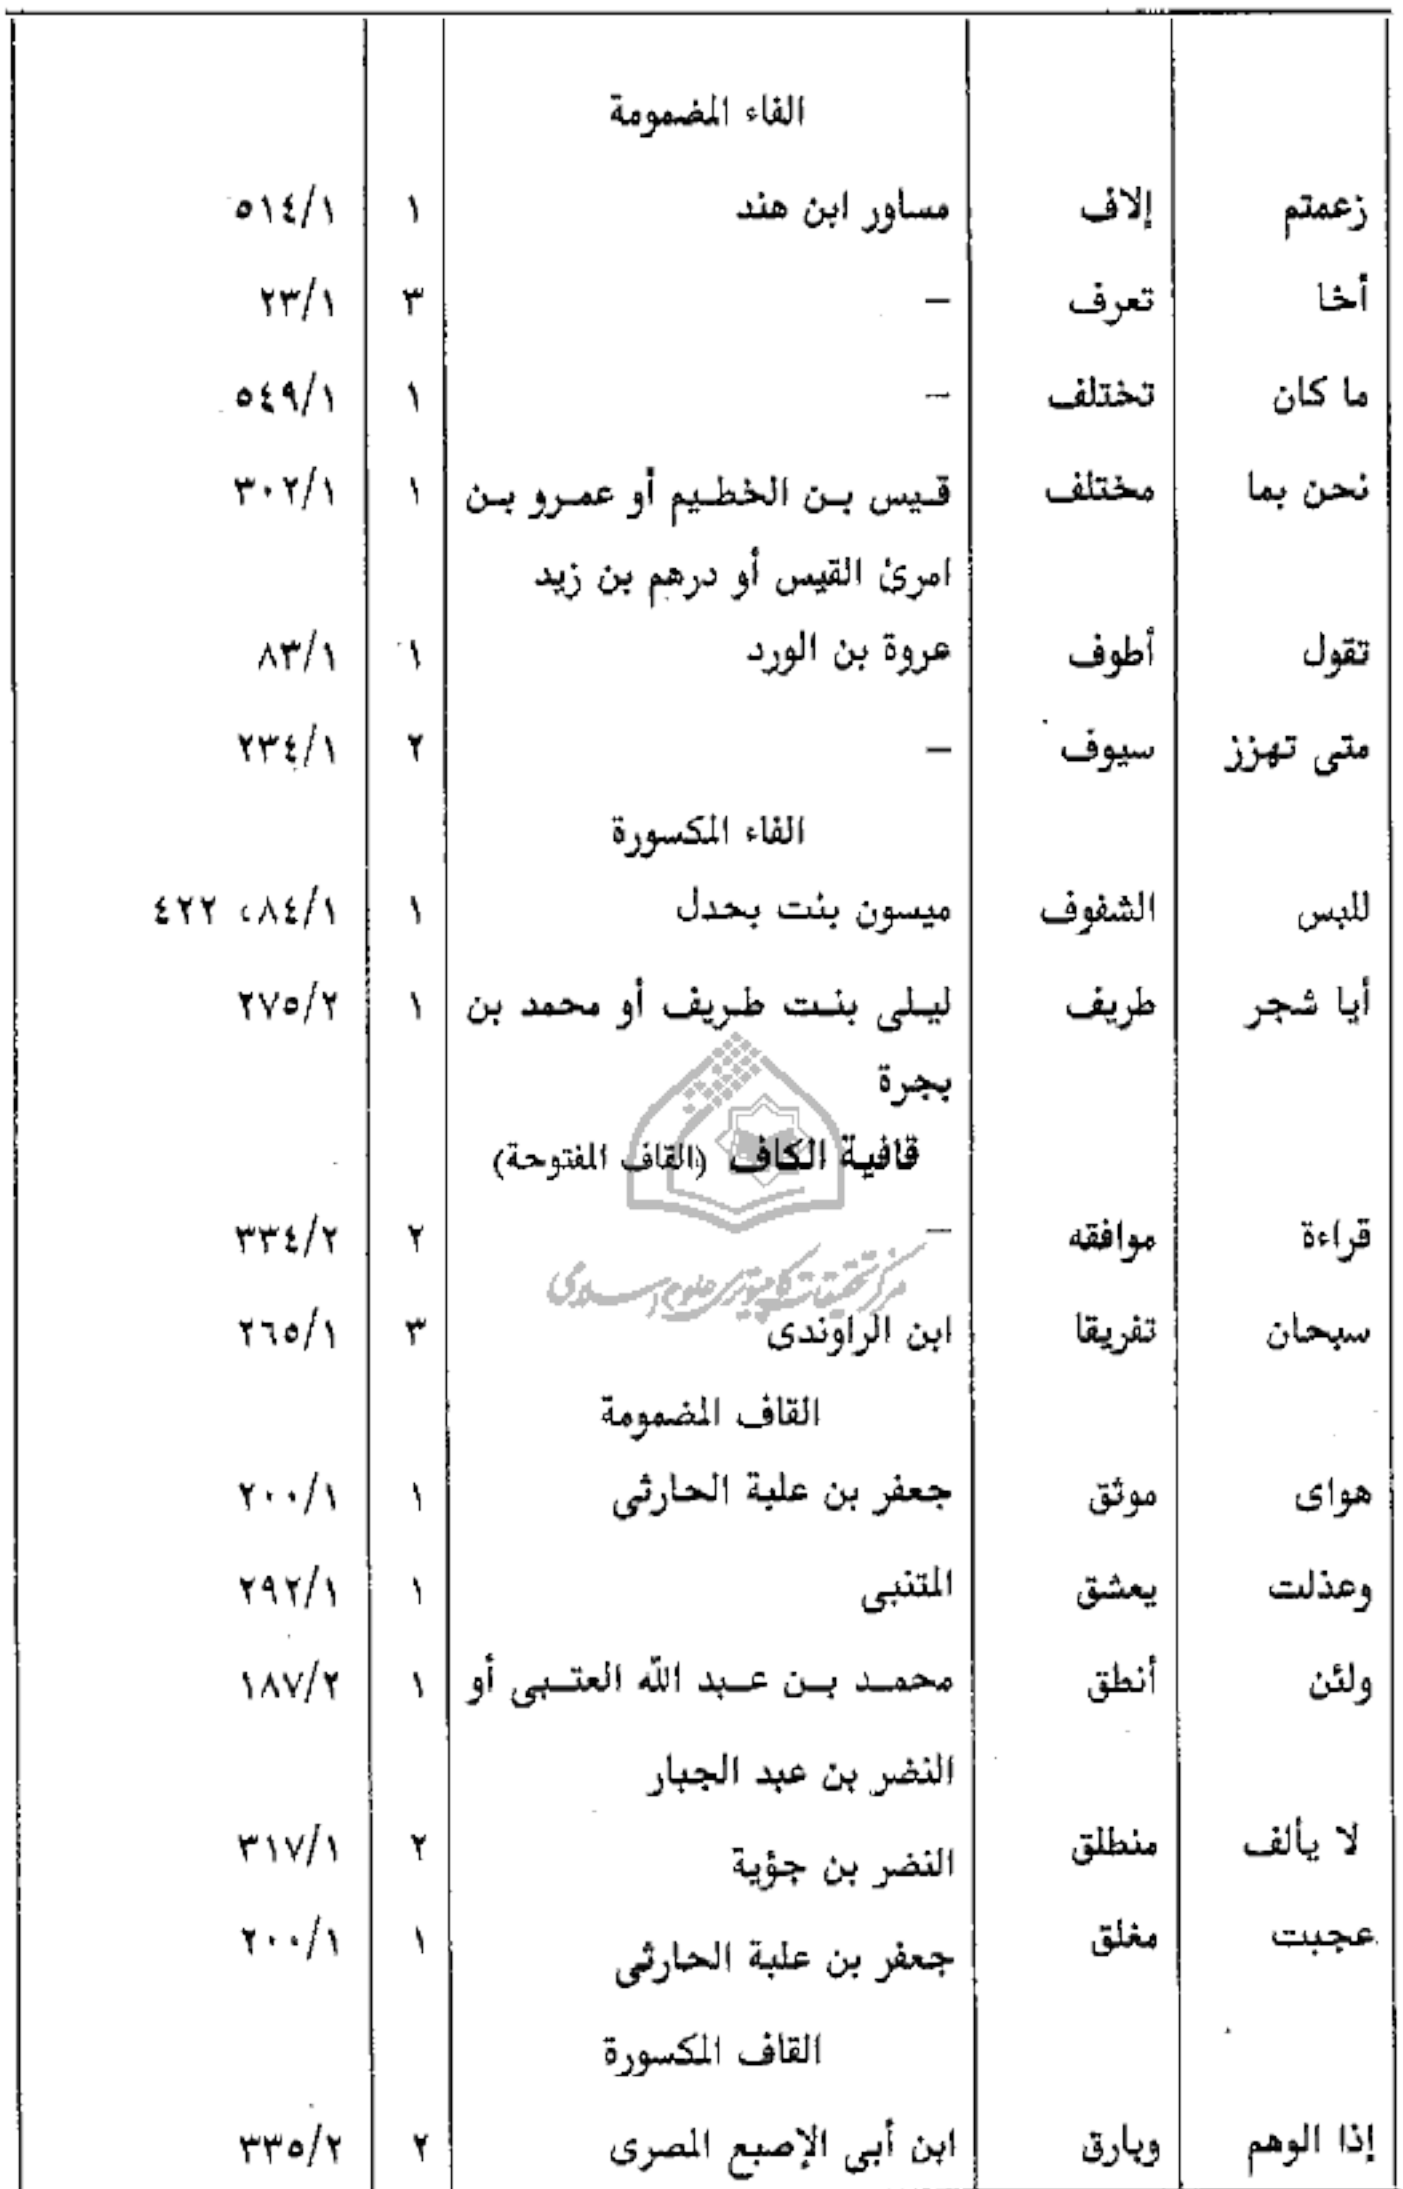 الفاء المضمومة
زعمتم إلاف مساور ابن هند ١ ٥١٤/١
أخا تعرف – ٣ ٢٣/١
ما كان تختلف – ١ ٥٤٩/١
نحن بما مختلف قيس بن الخطيم أو عمرو بن ١ ٣٠٢/١
امرئ القيس أو درهم بن زيد
تقول أطوف عروة بن الورد ١ ٨٣/١
متى تهزز سيوف – ٢ ٢٣٤/١
الفاء المكسورة
للبس الشفوف ميسون بنت بحدل ١ ٨٤/١، ٤٢٢
أيا شجر طريف ليلى بنت طريف أو محمد بن ١ ٢٧٥/٢
بجرة
قافية الكاف (القاف المفتوحة)
قراءة موافقه – ٢ ٣٣٤/٢
مركز تحقیقات کامپیوتری علوم اسلامی
سبحان تفريقا ابن الراوندى ٣ ٢٦٥/١
القاف المضمومة
هواى موثق جعفر بن علبة الحارثى ١ ٢٠٠/١
وعذلت يعشق المتنبى ١ ٢٩٢/١
ولئن أنطق محمد بن عبد الله العتبى أو ١ ١٨٧/٢
النضر بن عبد الجبار
لا يألف منطلق النضر بن جؤية ٢ ٣١٧/١
عجبت مغلق جعفر بن علبة الحارثى ١ ٢٠٠/١
القاف المكسورة
إذا الوهم وبارق ابن أبى الإصبع المصرى ٢ ٣٣٥/٢